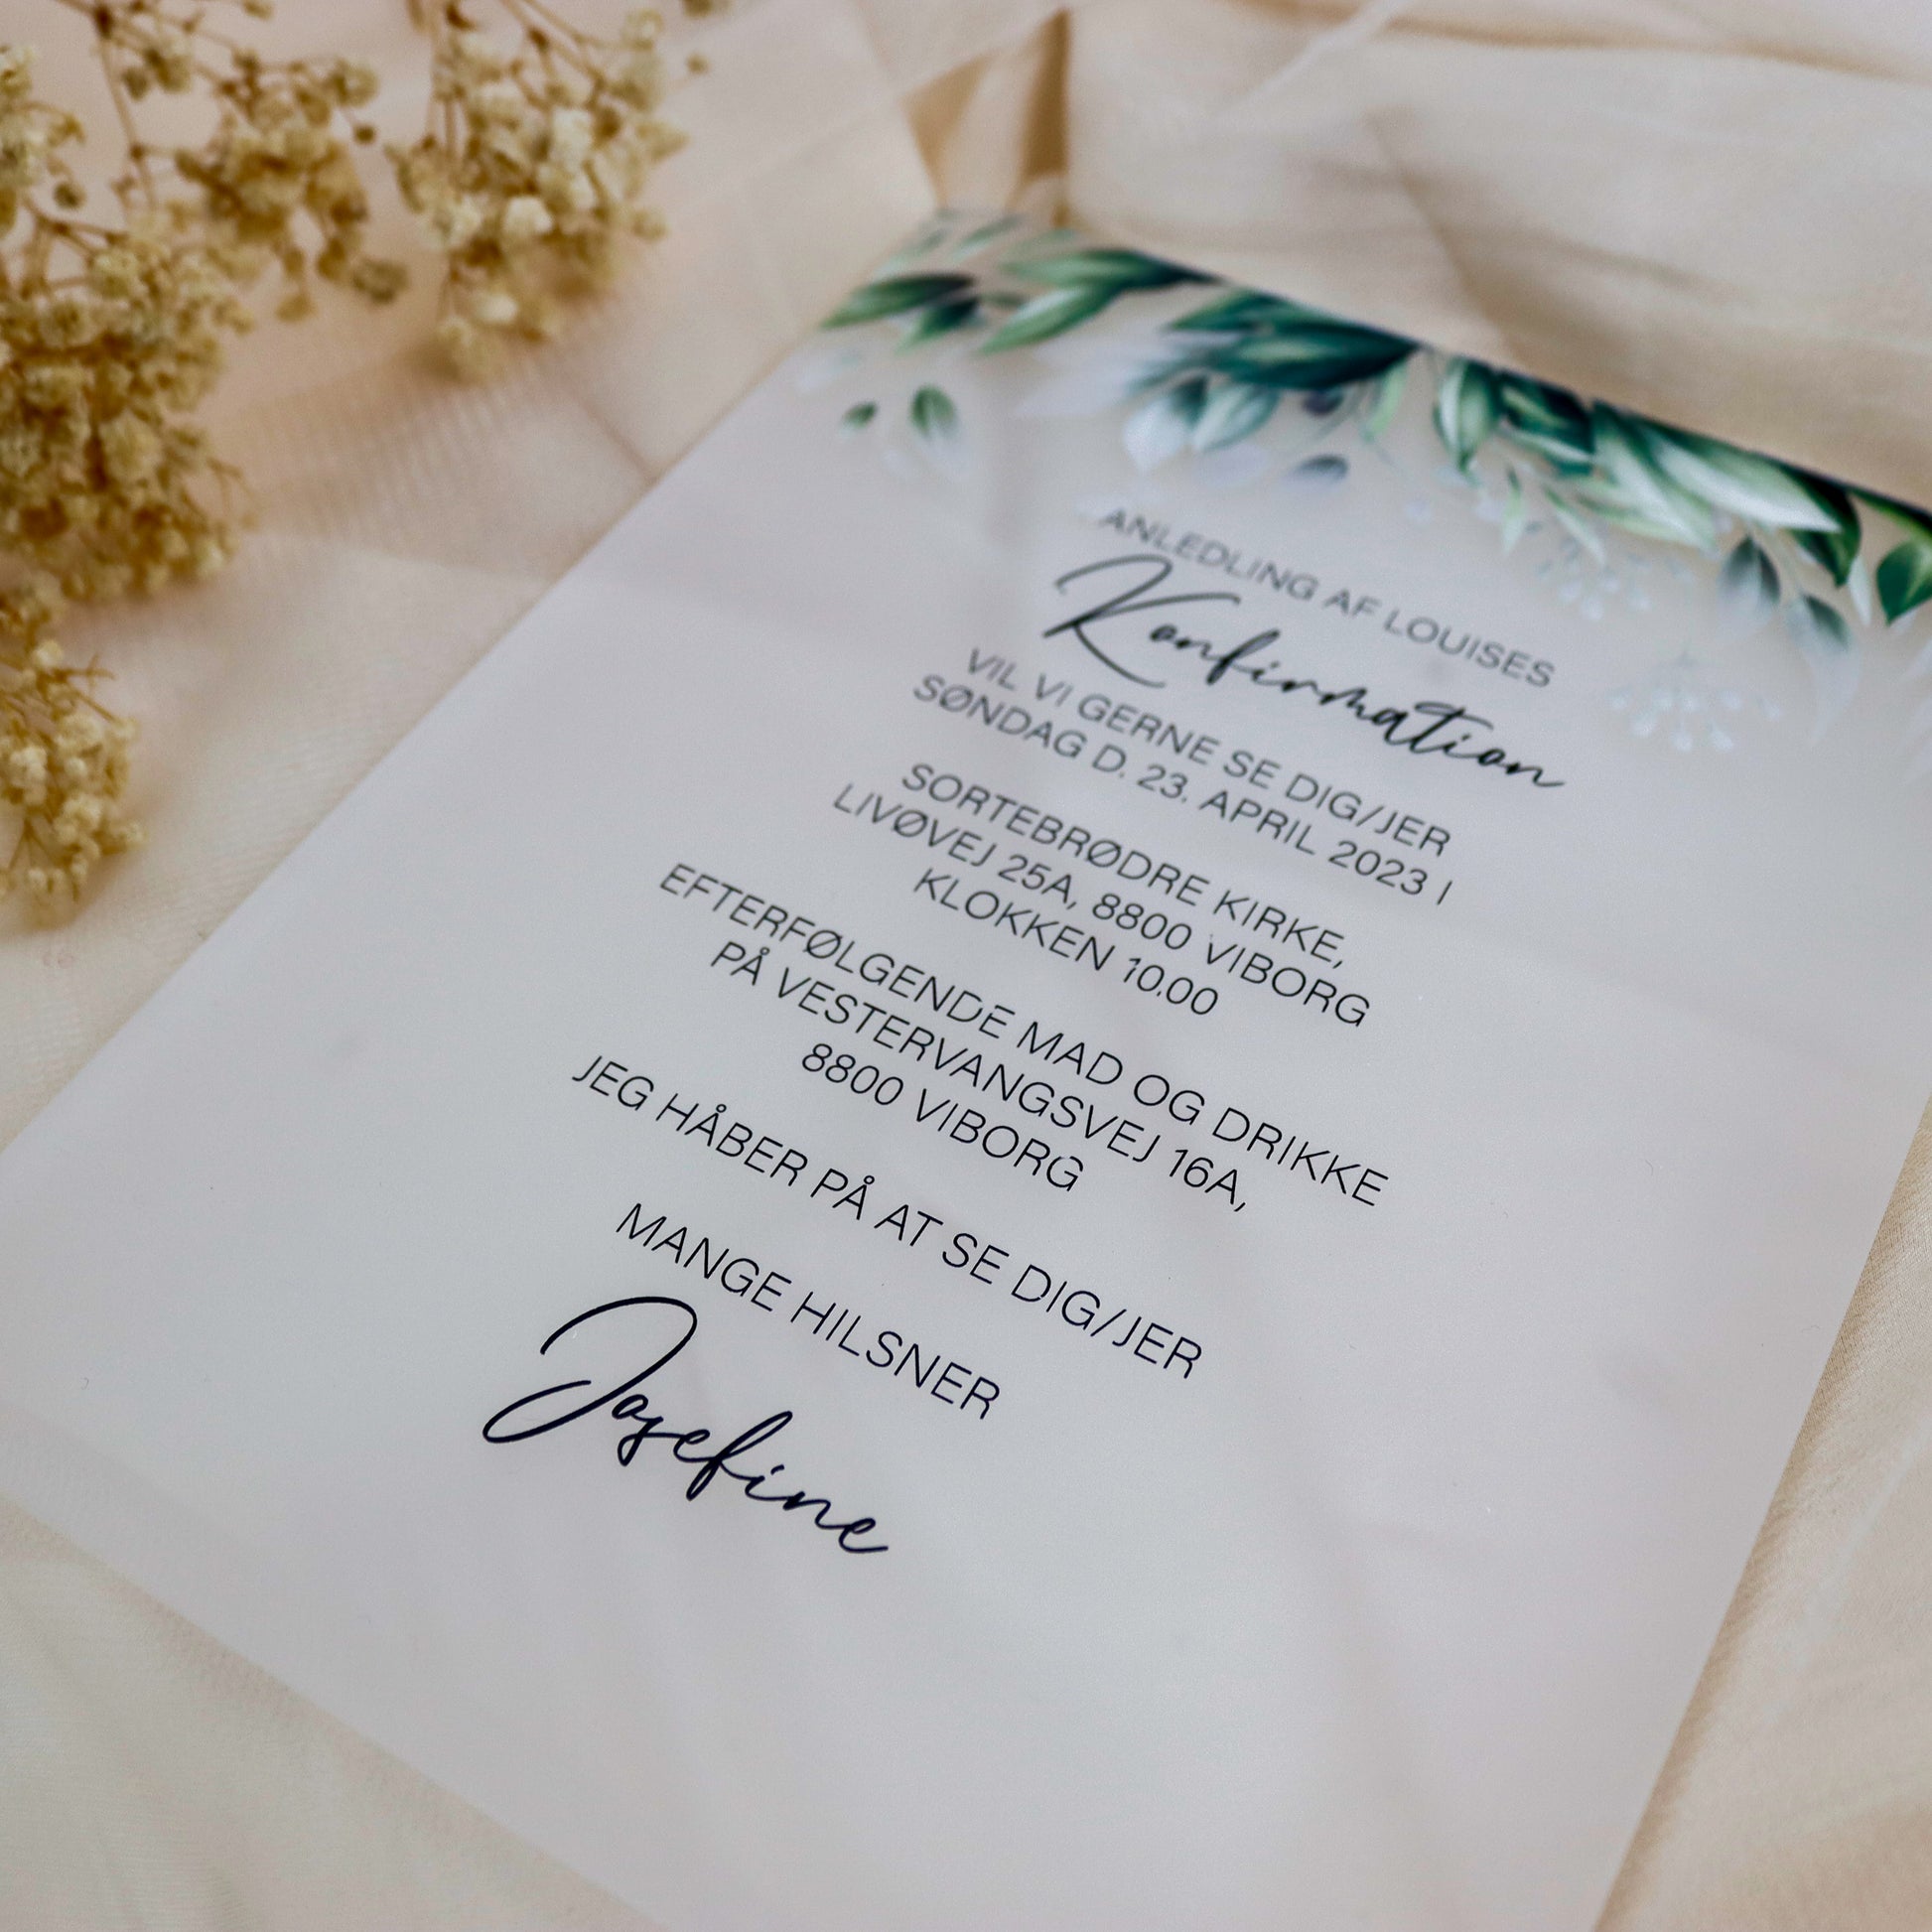 ANLEDLING AF LOUISES
Konfirmation
VIL VI GERNE SE DIG/JER
SØNDAG D. 23. APRIL 2023 I
SORTEBRØDRE KIRKE,
LIVØVEJ 25A, 8800 VIBORG
KLOKKEN 10.00
EFTERFØLGENDE MAD OG DRIKKE
PÅ VESTERVANGSVEJ 16A,
8800 VIBORG
JEG HÅBER PÅ AT SE DIG/JER
MANGE HILSNER
Josefine